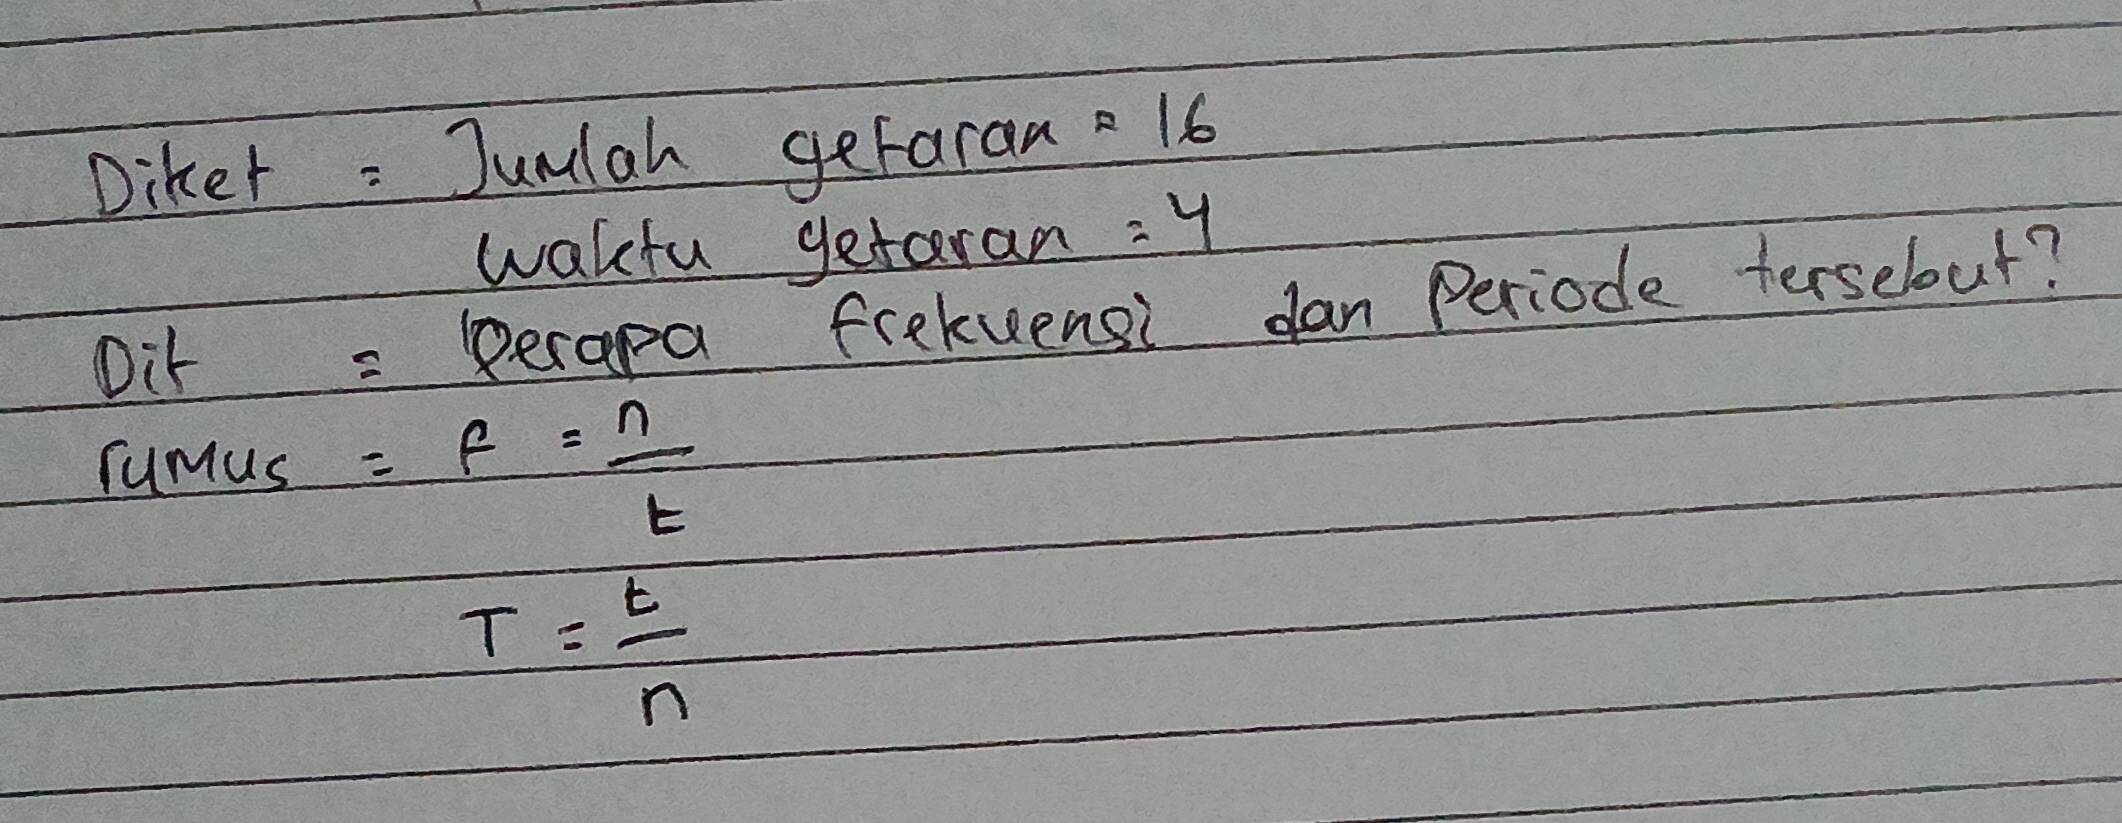 Diket = Jumlah getaran = 16
waktu getaran = 4
Dit = berapa frekuensi dan Periode tersebut?
rumus = f = n
t
T = t
n